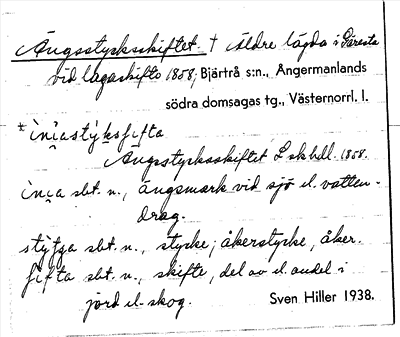 Ängsstycksskiftet. † äldre lägda i Gåresta
vid lagaskifte 1858, Bjärtrå s:n., Ångermanlands
södra domsagas tg., Västernorrl. l.
Ängsstycksskiftet L sk hdl. 1858.
sbt. n., ängsmark vid sjö el. vatten-
drag.
sbt. n., stycke; åkerstycke, åker.
sbt. n., skifte, del av el. andel i
jord el. skog. Sven Hiller 1938.